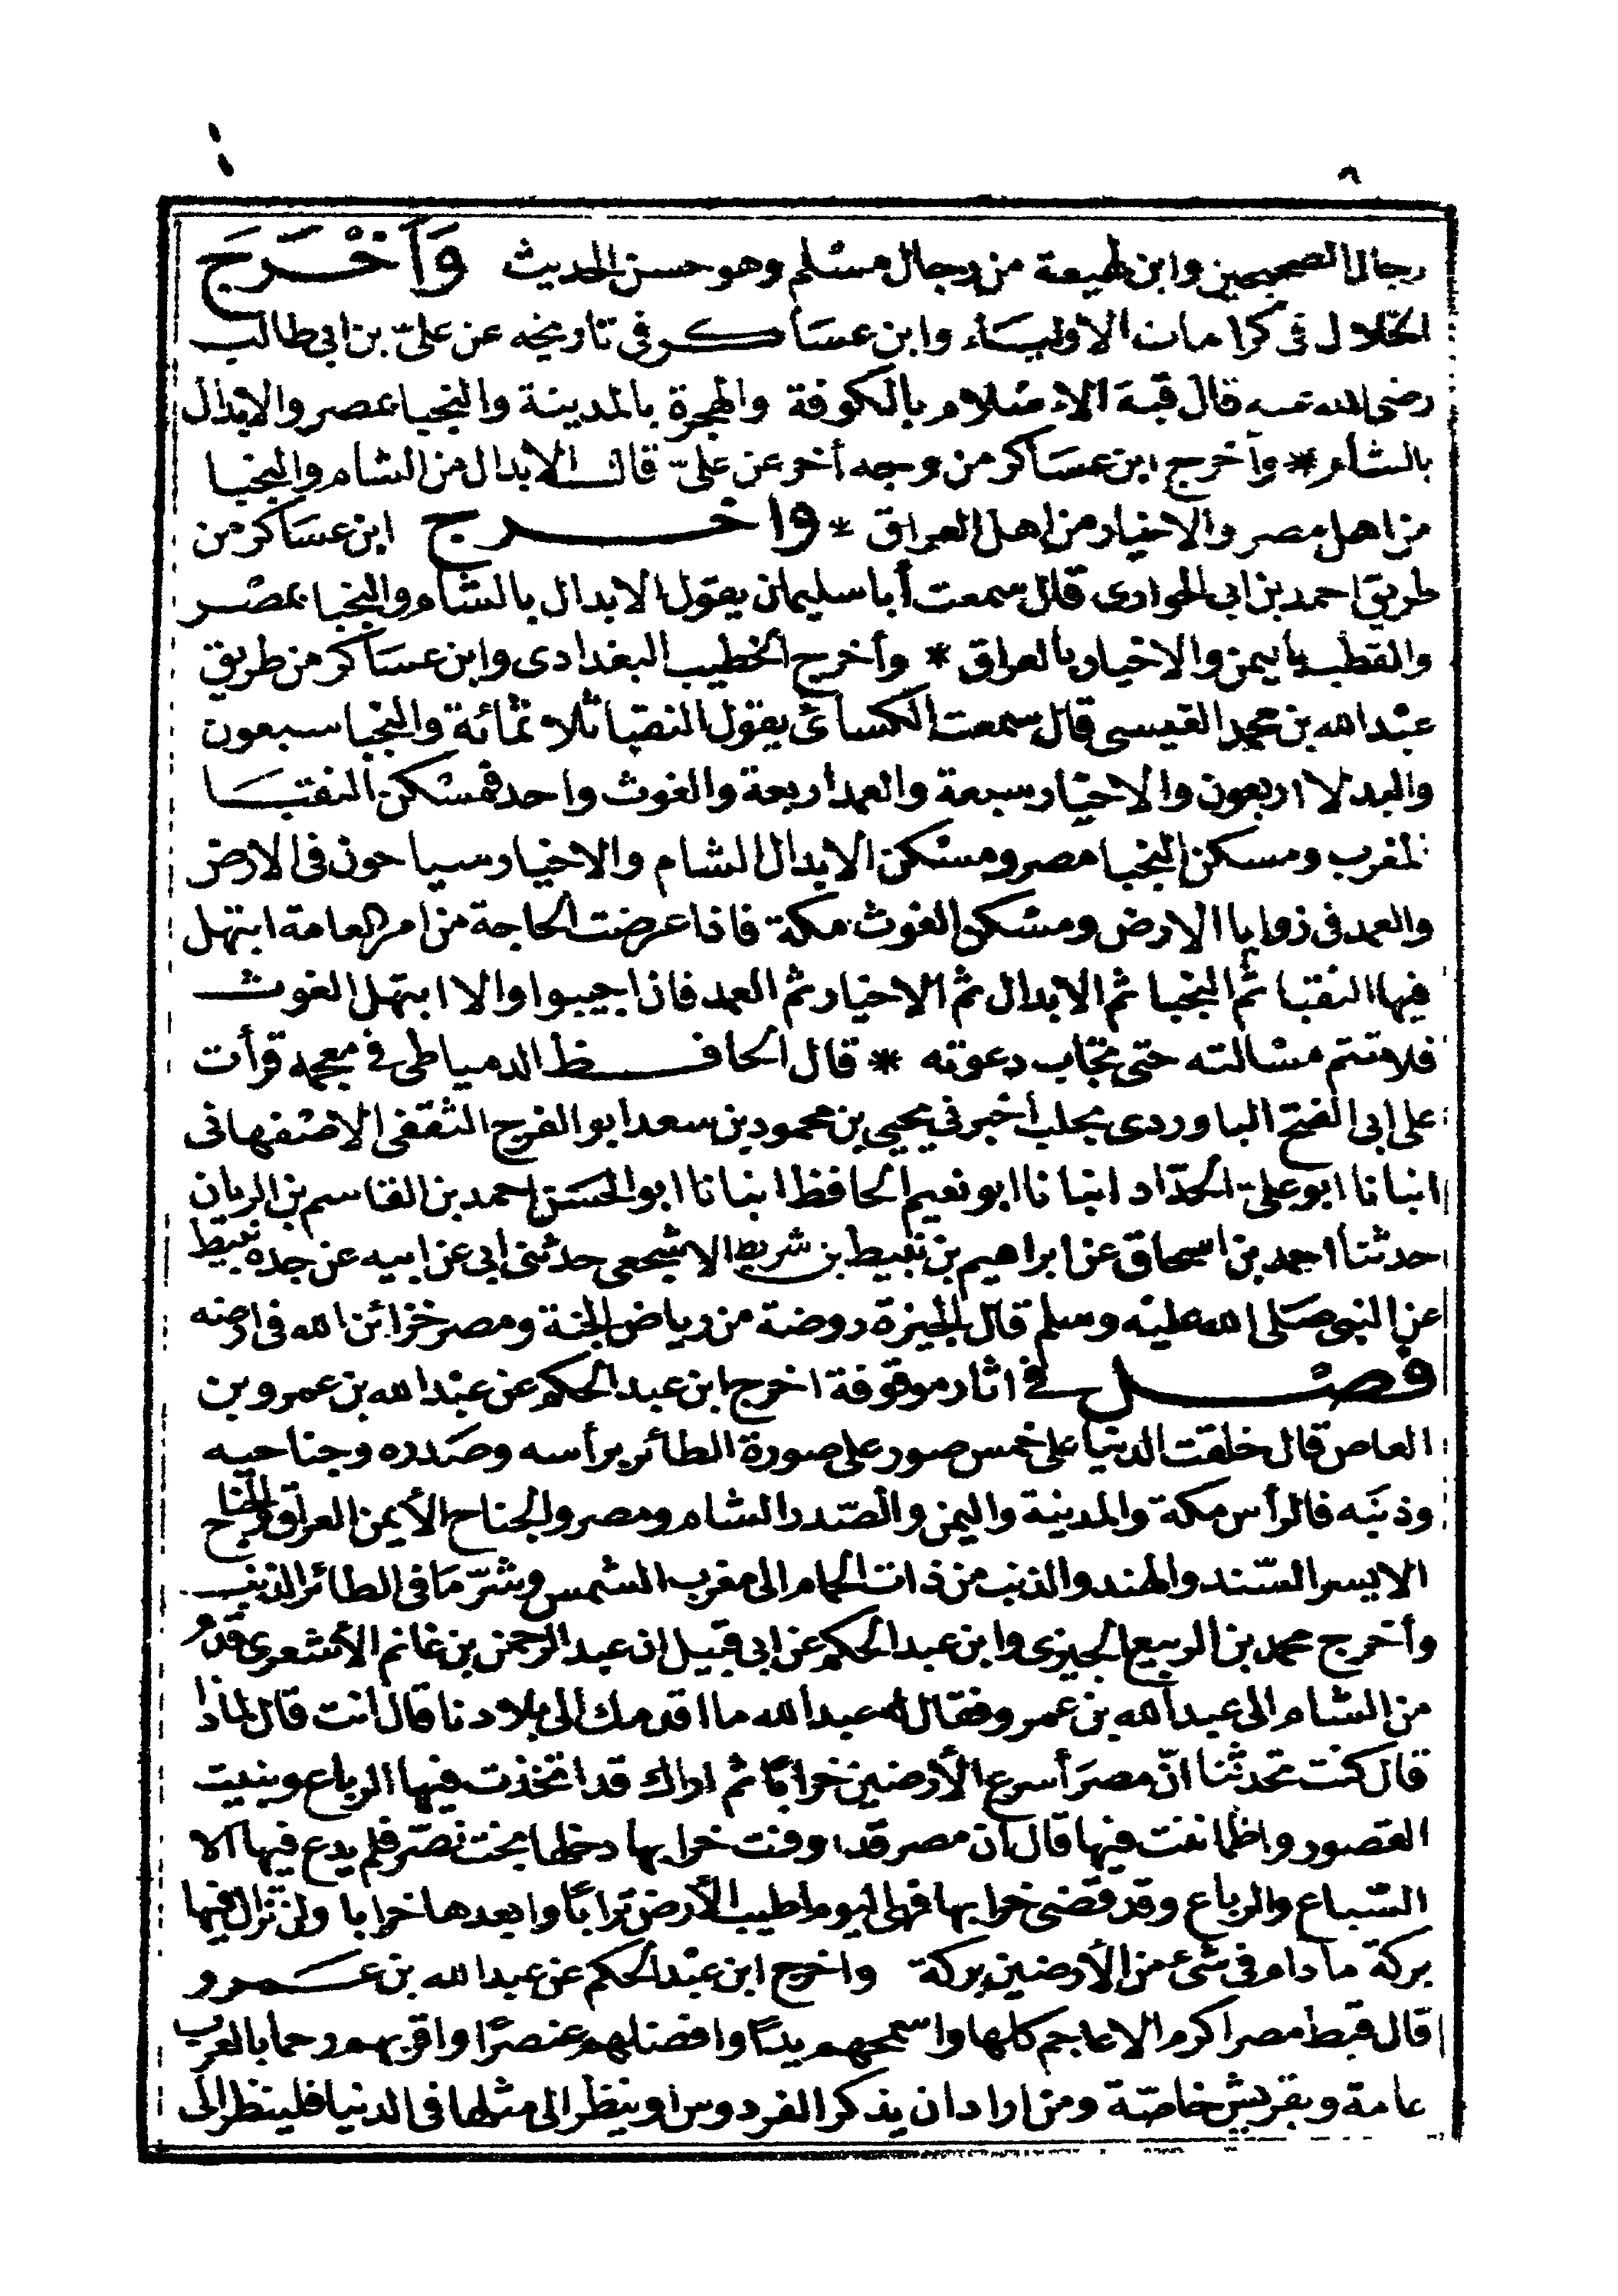 رجال الصحيحين وابن لهيعة من رجال مسلم وهو حسن الحديث وَأَخْرَجَ
الخلال فى كرامات الأولياء وابن عساكر فى تاريخه عن علىّ بن ابى طالب
رضى الله عنه قال قبة الاسلام بالكوفة والهجرة بالمدينة والنجبا بمصر والابدال
بالشام * وأخرج ابن عساكر من وجه أخر عن علىّ قال الابدال من الشام والنجبا
من اهل مصر والاخيار من اهل العراق * واخرج ابن عساكر من
طريق احمد بن ابى الحوارى قال سمعت أبا سليمان يقول الابدال بالشام والنجبا بمصر
والقطب باليمن والاخيار بالعراق * وأخرج الخطيب البغدادى وابن عساكر من طريق
عبد الله بن محمد القيسى قال سمعت الكسائى يقول النقبا ثلاثمائة والنجبا سبعون
والبدلا اربعون والاخيار سبعة والعمد اربعة والغوث واحد فمسكن النقبا
المغرب ومسكن النجبا مصر ومسكن الابدال الشام والاخيار سياحون فى الارض
والعمد فى زوايا الارض ومسكن الغوث مكة فاذا عرضت الحاجة من امر العامة ابتهل
فيها النقبا ثم النجبا ثم الابدال ثم الاخيار ثم العمد فاذا جيبوا والا ابتهل الغوث
فلا تتم مسالته حتى تجاب دعوته * قال الحافظ الدمياطى فى معجمه قرأت
على ابى الفتح الباوردى بحلب أخبرنى يحيى بن محمود بن سعد ابو الفرج الثقفى الاصفهانى
انبانا ابو علىّ الحدّاد انبانا ابو نعيم الحافظ انبانا ابو الحسن احمد بن القاسم بن الريان
حدثنا احمد بن اسحاق عن ابراهيم بن نبيط بن شريط الاشجعى حدثنى ابى عن ابيه عن جده نبيط
عن النبى صلى الله عليه وسلم قال الجيزة روضة من رياض الجنة ومصر خزائن الله فى ارضه
فصل فى اثار موقوفة اخرج ابن عبد الحكم عن عبد الله بن عمرو بن
العاص قال خلقت الدنيا على خمس صور على صورة الطائر برأسه وصدره وجناحيه
وذنبه فالرأس مكة والمدينة واليمن والصّدر الشام ومصر والجناح الأيمن العراق والجناح
الايسر السّند والهند والذنب من ذات الحمام الى مغرب الشمس وشرّ ما فى الطائر الذنب
وأخرج محمد بن الربيع الجيزى وابن عبد الحكم عن ابى قبيل ان عبد الرحمن بن غانم الأشعرى قدم
من الشام الى عبد الله بن عمرو فقال له عبد الله ما اقدمك الى بلادنا قال انت قال لماذا
قال كنت تحدثنا انّ مصرَ أسرع الأرضين خرابًا ثم اراك قد اتخذت فيها الرباع وبنيت
القصور واطماننت فيها قال ان مصر قد اوفت خرابها دخلها بختنصّر فلم يدع فيها الا
السّباع والرباع وقد قضى خرابها فهى اليوم اطيب الأرض ترابًا وابعدها خرابا ولن تزال فيها
بركة ما دام فى شئ من الأرضين بركة واخرج ابن عبد الحكم عن عبد الله بن عمرو
قال قبط مصر اكرم الاعاجم كلها واسمحهم يدًا وافضلهم عنصرًا واقربهم رحما بالعرب
عامة وبقريش خاصّة ومن اراد ان يذكر الفردوس او ينظر الى مثلها فى الدنيا فلينظر الى